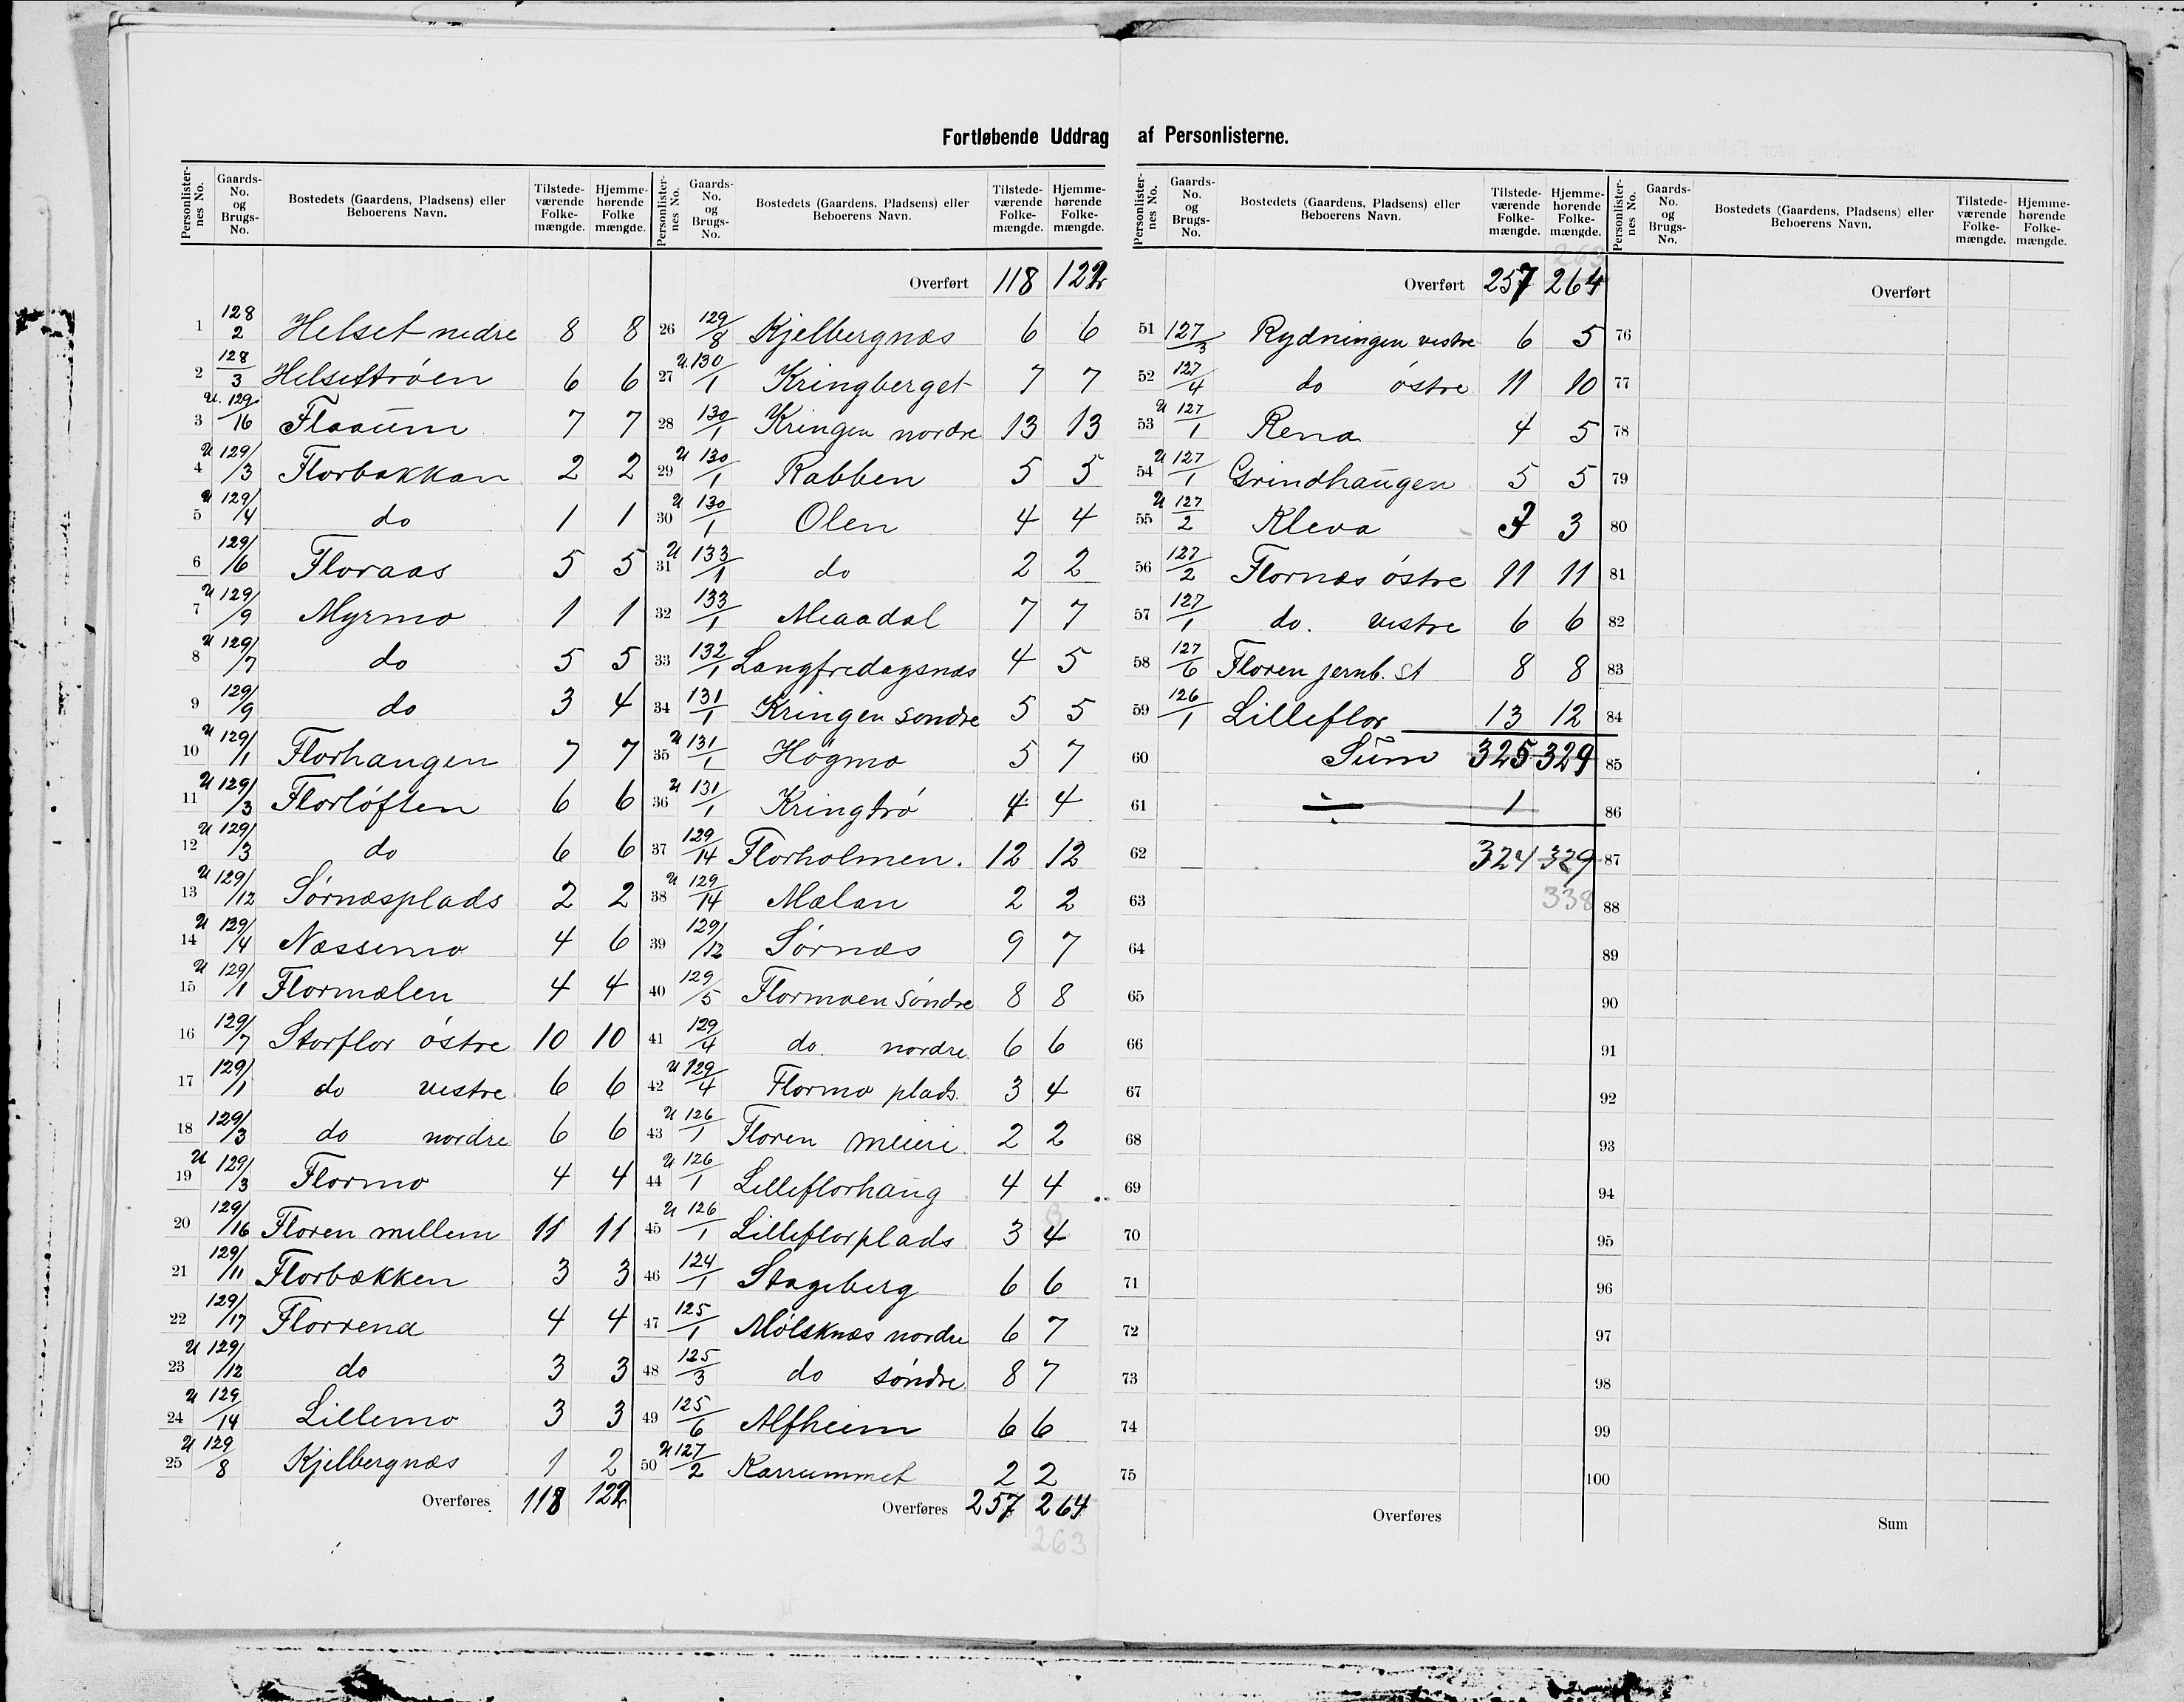 Fortløbende Uddrag af Personlisterne.
Personlister-nes No. Gaards-No. og Brugs-No. Bostedets (Gaardens, Pladsens) eller Beboerens Navn. Tilstede-værende Folke-mængde. Hjemme-hørende Folke mængde.
1 128/2 Helset nedre 8 8
2 128/3 Helsetrøen 6 6
3 U. 129/16 Flaaum 7 7
4 U 129/3 Florbakkan 2 2
5 U 129/4 do 1 1
6 129/6 Floraas 5 5
7 U 129/9 Myrmo 1 1
8 U 129/7 do 5 5
9 129/9 do 3 4
10 U 129/1 Florhaugen 7 7
11 U 129/3 Florløften 6 6
12 U 129/3 do 6 6
13 U 129/12 Sørnæsplads 2 2
14 U 129/4 Næssemo 4 6
15 U 129/1 Flormælen 4 4
16 129/7 Storflor östre 10 10
17 129/1 do vestre 6 6
18 129/3 do nordre 6 6
19 U 129/3 Flormo 4 4
20 129/16 Floren mellem 11 11
21 129/11 Florbækken 3 3
22 129/17 Florrena 4 4
23 U 129/12 do 3 3
24 U 129/14 Lillemo 3 3
25 U 129/8 Kjelbergnæs 1 2
Overføres 118 122
Personlister-nes No. Gaards-No. og Brugs-No. Bostedets (Gaardens, Pladsens) eller Beboerens Navn. Tilstede-værende Folke-mængde. Hjemme-hørende Folke-mængde.
Overført 118 122
26 129/8 Kjelbergnæs 6 6
27 U. 130/1 Kringberget 7 7
28 130/1 Kringen nordre 13 13
29 U 130/1 Rabben 5 5
30 U 130/1 Olen 4 4
31 U 133/1 do 2 2
32 133/1 Meaadal 7 7
33 132/1 Langfredagsnæs 4 5
34 131/1 Kringen søndre 5 5
35 U 131/1 Högmo 5 7
36 U 131/1 Kringtrø 4 4
37 129/14 Florholmen. 12 12
38 U 129/14 Mælan 2 2
39 129/12 Sørnæs 9 7
40 129/5 Flormoen søndre 8 8
41 129/4 do nordre 6 6
42 U 129/4 Flormo plads. 3 4
43 U 126/1 Floren meieri 2 2
44 U 126/1 Lilleflorhaug 4 4
45 U 126/1 Lilleflorplads 3 4 3
46 124/1 Stageberg 6 6
47 125/1 Mölsknæs nordre 6 7
48 125/3 do søndre 8 7
49 125/6 Alfheim 6 6
50 U 127/2 Karrummet 2 2
Overføres 257 264
263
Personlister-nes No. Gaards-No. og Brugs-No. Bostedets (Gaardens, Pladsens) eller Beboerens Navn. Tilstede-værende Folke-mængde. Hjemme-hørende Folke-mængde.
263
Overført 257 264
51 127/3 Rydningen vestre 6 5
52 127/4 do östre 11 10
53 U 127/1 Rena 4 5
54 U 127/1 Grindhaugen 5 5
55 U 127/2 Kleva 3
56 127/2 Flornæs östre 11 11
57 127/1 do. vestre 6 6
58 127/6 Floren jernb. st 8 8
59 126/1 Lilleflor 13 12
60 Sum 325 329
61 ÷ 1
62 324 329
63 338
64
65
66
67
68
69
70
71
72
73
74
75
Overføres
Personlister-nes No. Gaards-No. og Brugs-No. Bostedets (Gaardens, Pladsens) eller Beboerens Navn. Tilstede-værende Folke-mængde. Hjemme-hørende Folke-mængde.
Overført
76
77
78
79
80
81
82
83
84
85
86
87
88
89
90
91
92
93
94
95
96
97
98
99
100
Sum